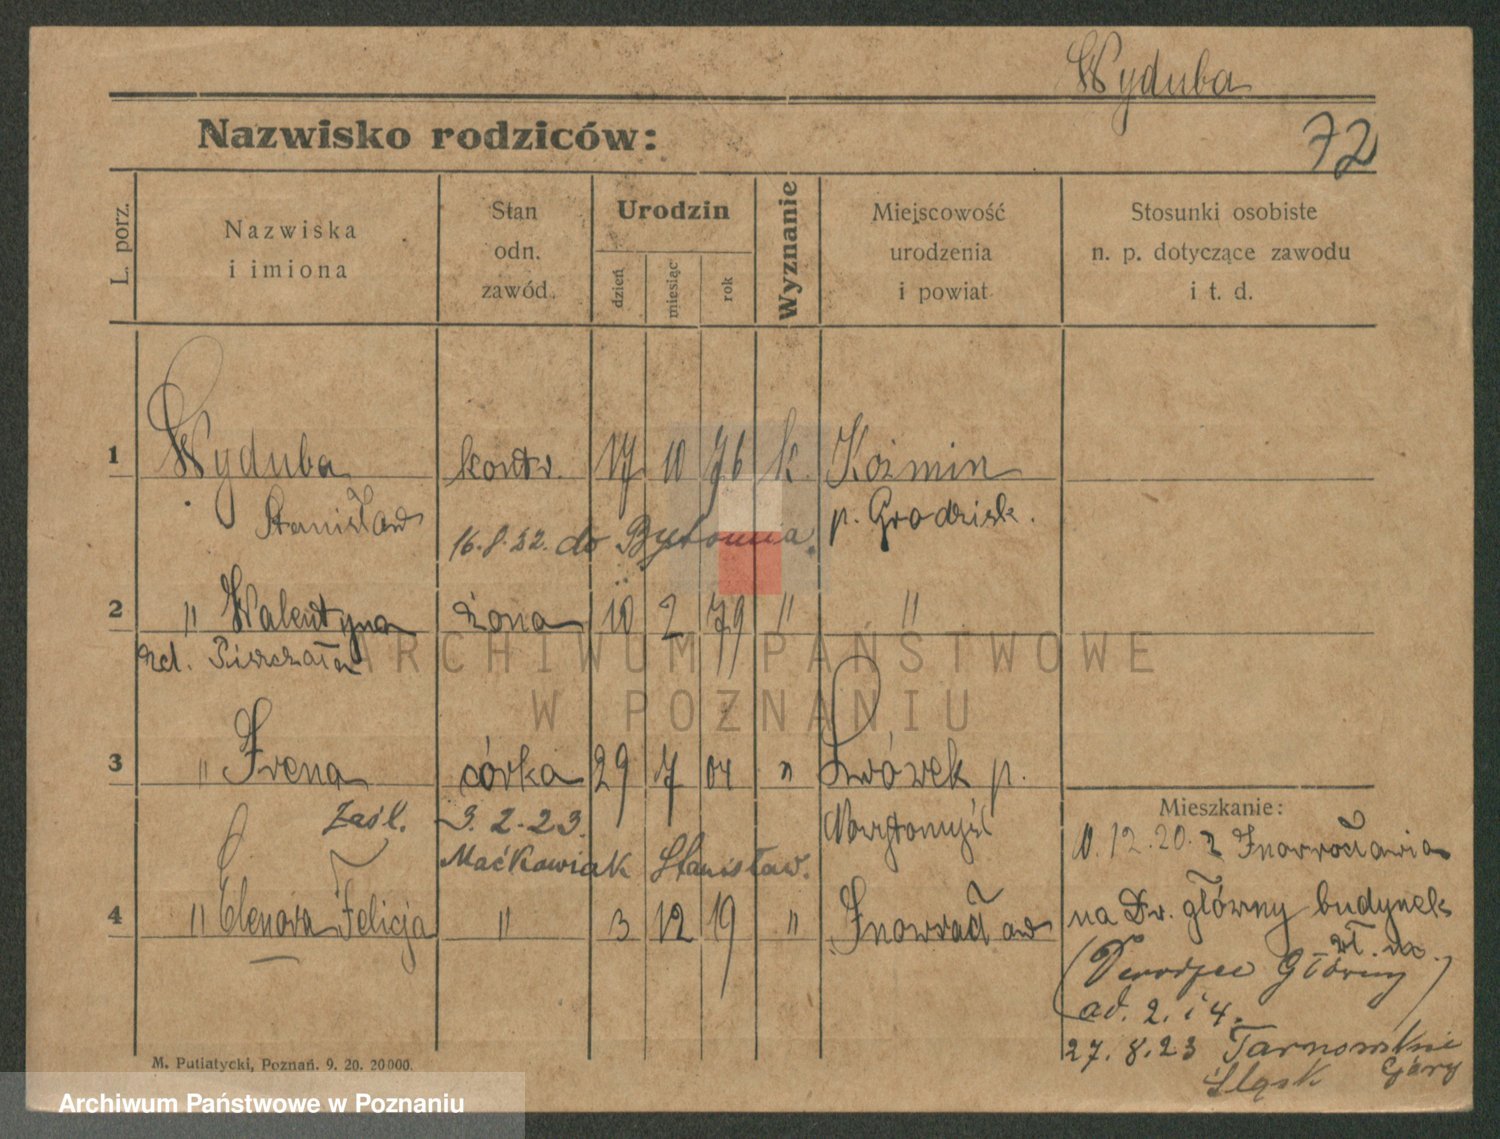 Wyduba
Nazwisko rodziców:
72
L. porz.
Nazwiska
i imiona
Stan
odn.
zawód.
Urodzin
dzień
miesiąc
rok
Wyznanie
Miejscowość
urodzenia
i powiat
Stosunki osobiste
n. p. dotyczące zawodu
i t. d.
1 Wyduba kontr. 17 10 76 k. Koźmin
Stanisław p. Grodzisk.
16.8.22. do Bytomia.
2 " Walentyna żona 10 2 79 " "
Pierzchała
3 " Irena córka 29 7 04 " Lwówek p.
Mieszkanie:
Zaśl. 3.2.23. Nowytomyśl
Maćkowiak Stanisław.
12.20. z Inowrocławia
4 " Elenora Felicja " 3 12 19 " Inowrocław
na Dw. główny budynek
(Dworzec Główny)
ad. 2. i 4.
27.8.23 Tarnowskie
Góry
Śląsk
M. Putiatycki, Poznań. 9. 20. 20000.
ARCHIWUM PAŃSTWOWE
W POZNANIU
Archiwum Państwowe w Poznaniu